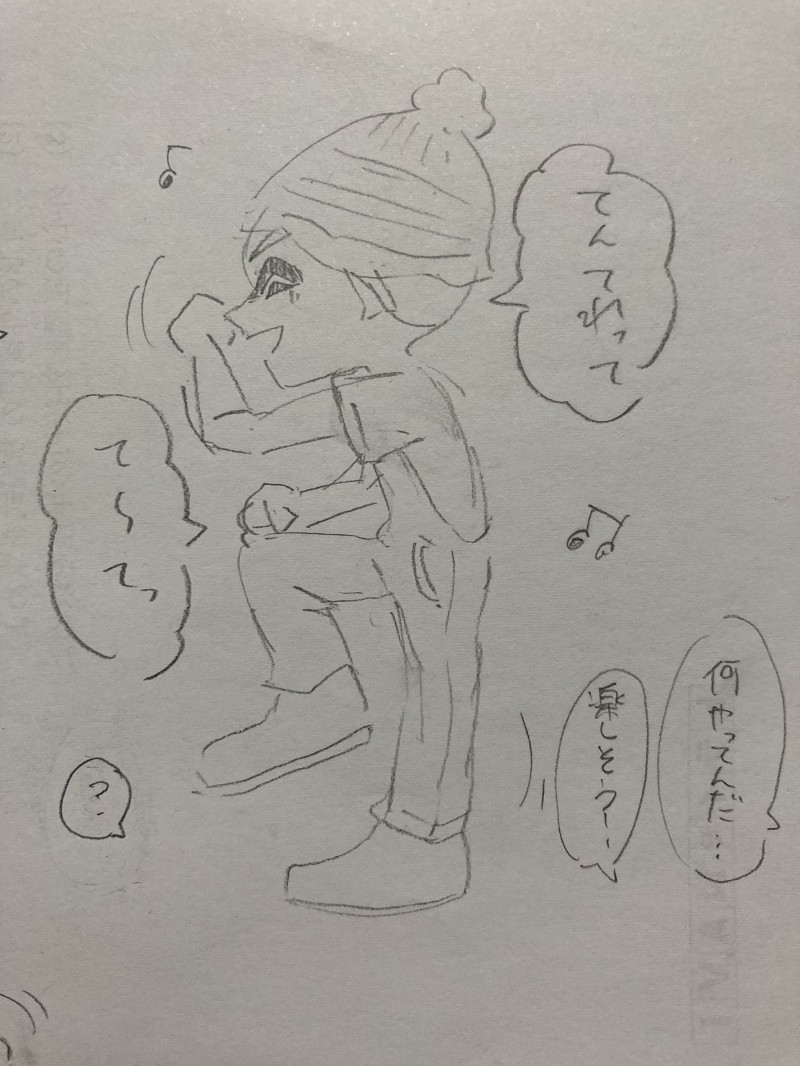 てんてれって
て〜てっ
何やってんだ…
楽しそうー.
?